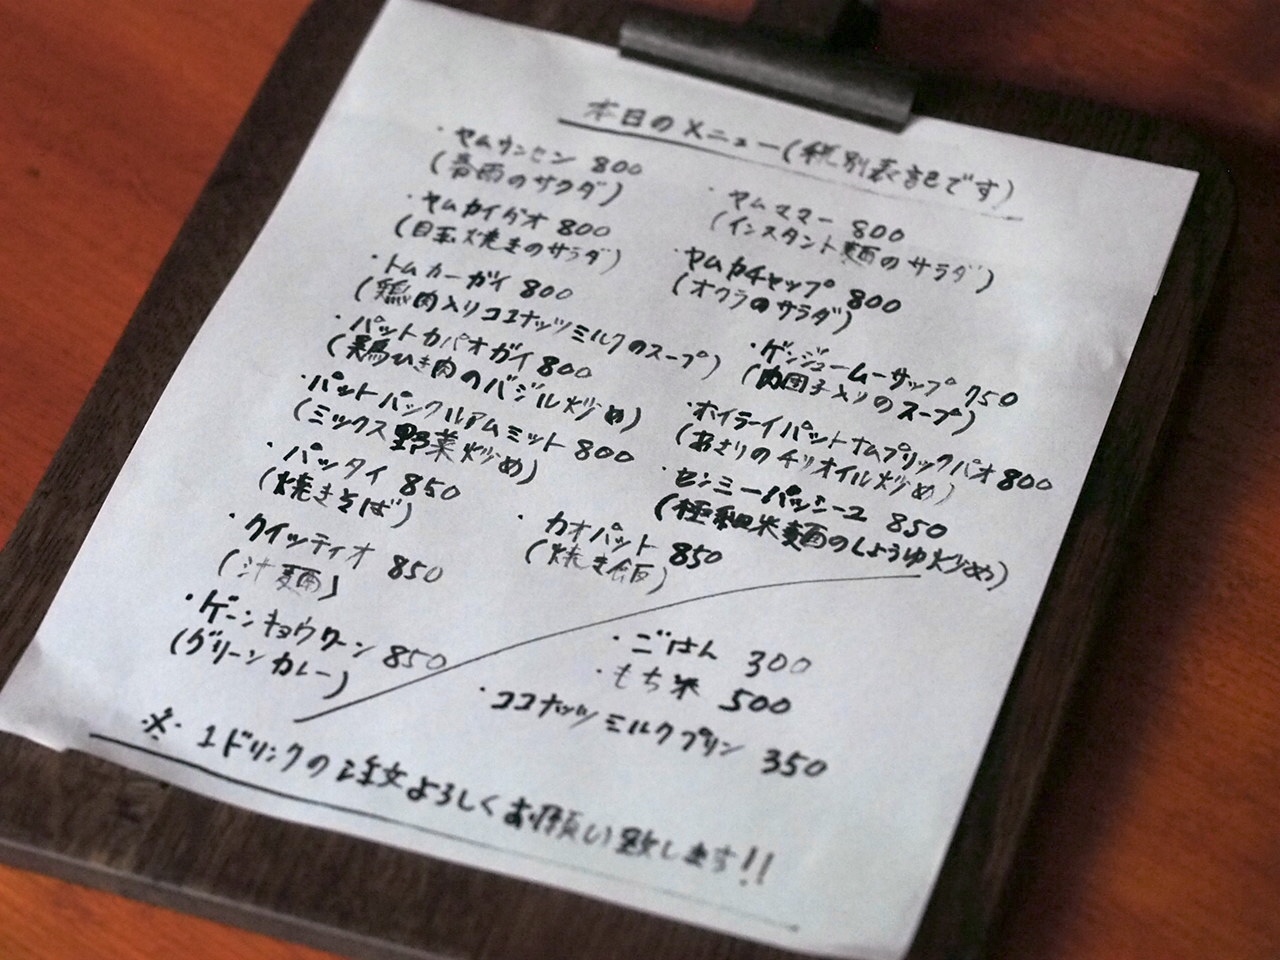 本日のメニュー(税別表記です)
・ヤムウンセン 800
(春雨のサラダ)
・ヤムカイダオ 800
(目玉焼きのサラダ)
・トムカーガイ 800
(鶏肉入りココナッツミルクのスープ)
・パットカパオガイ 800
(鶏ひき肉のバジル炒め)
・パットパックルアムミット 800
(ミックス野菜炒め)
・パッタイ 850
(焼きそば)
・クイッティオ 850
(汁麺)
・ゲーンキョウワーン 850
(グリーンカレー)
・ヤムママー 800
(インスタント麺のサラダ)
・ヤムカチャップ 800
(オクラのサラダ)
・ゲンジュームーサップ 750
(肉団子入りのスープ)
・ホイラーイパットナムプリックパオ 800
(あさりのチリオイル炒め)
・センミーパッシーユ 850
(極細米麺のしょうゆ炒め)
・カオパット 850
(焼き飯)
・ごはん 300
・もち米 500
・ココナッツミルクプリン 350
※ 1ドリンクの注文よろしくお願い致します!!